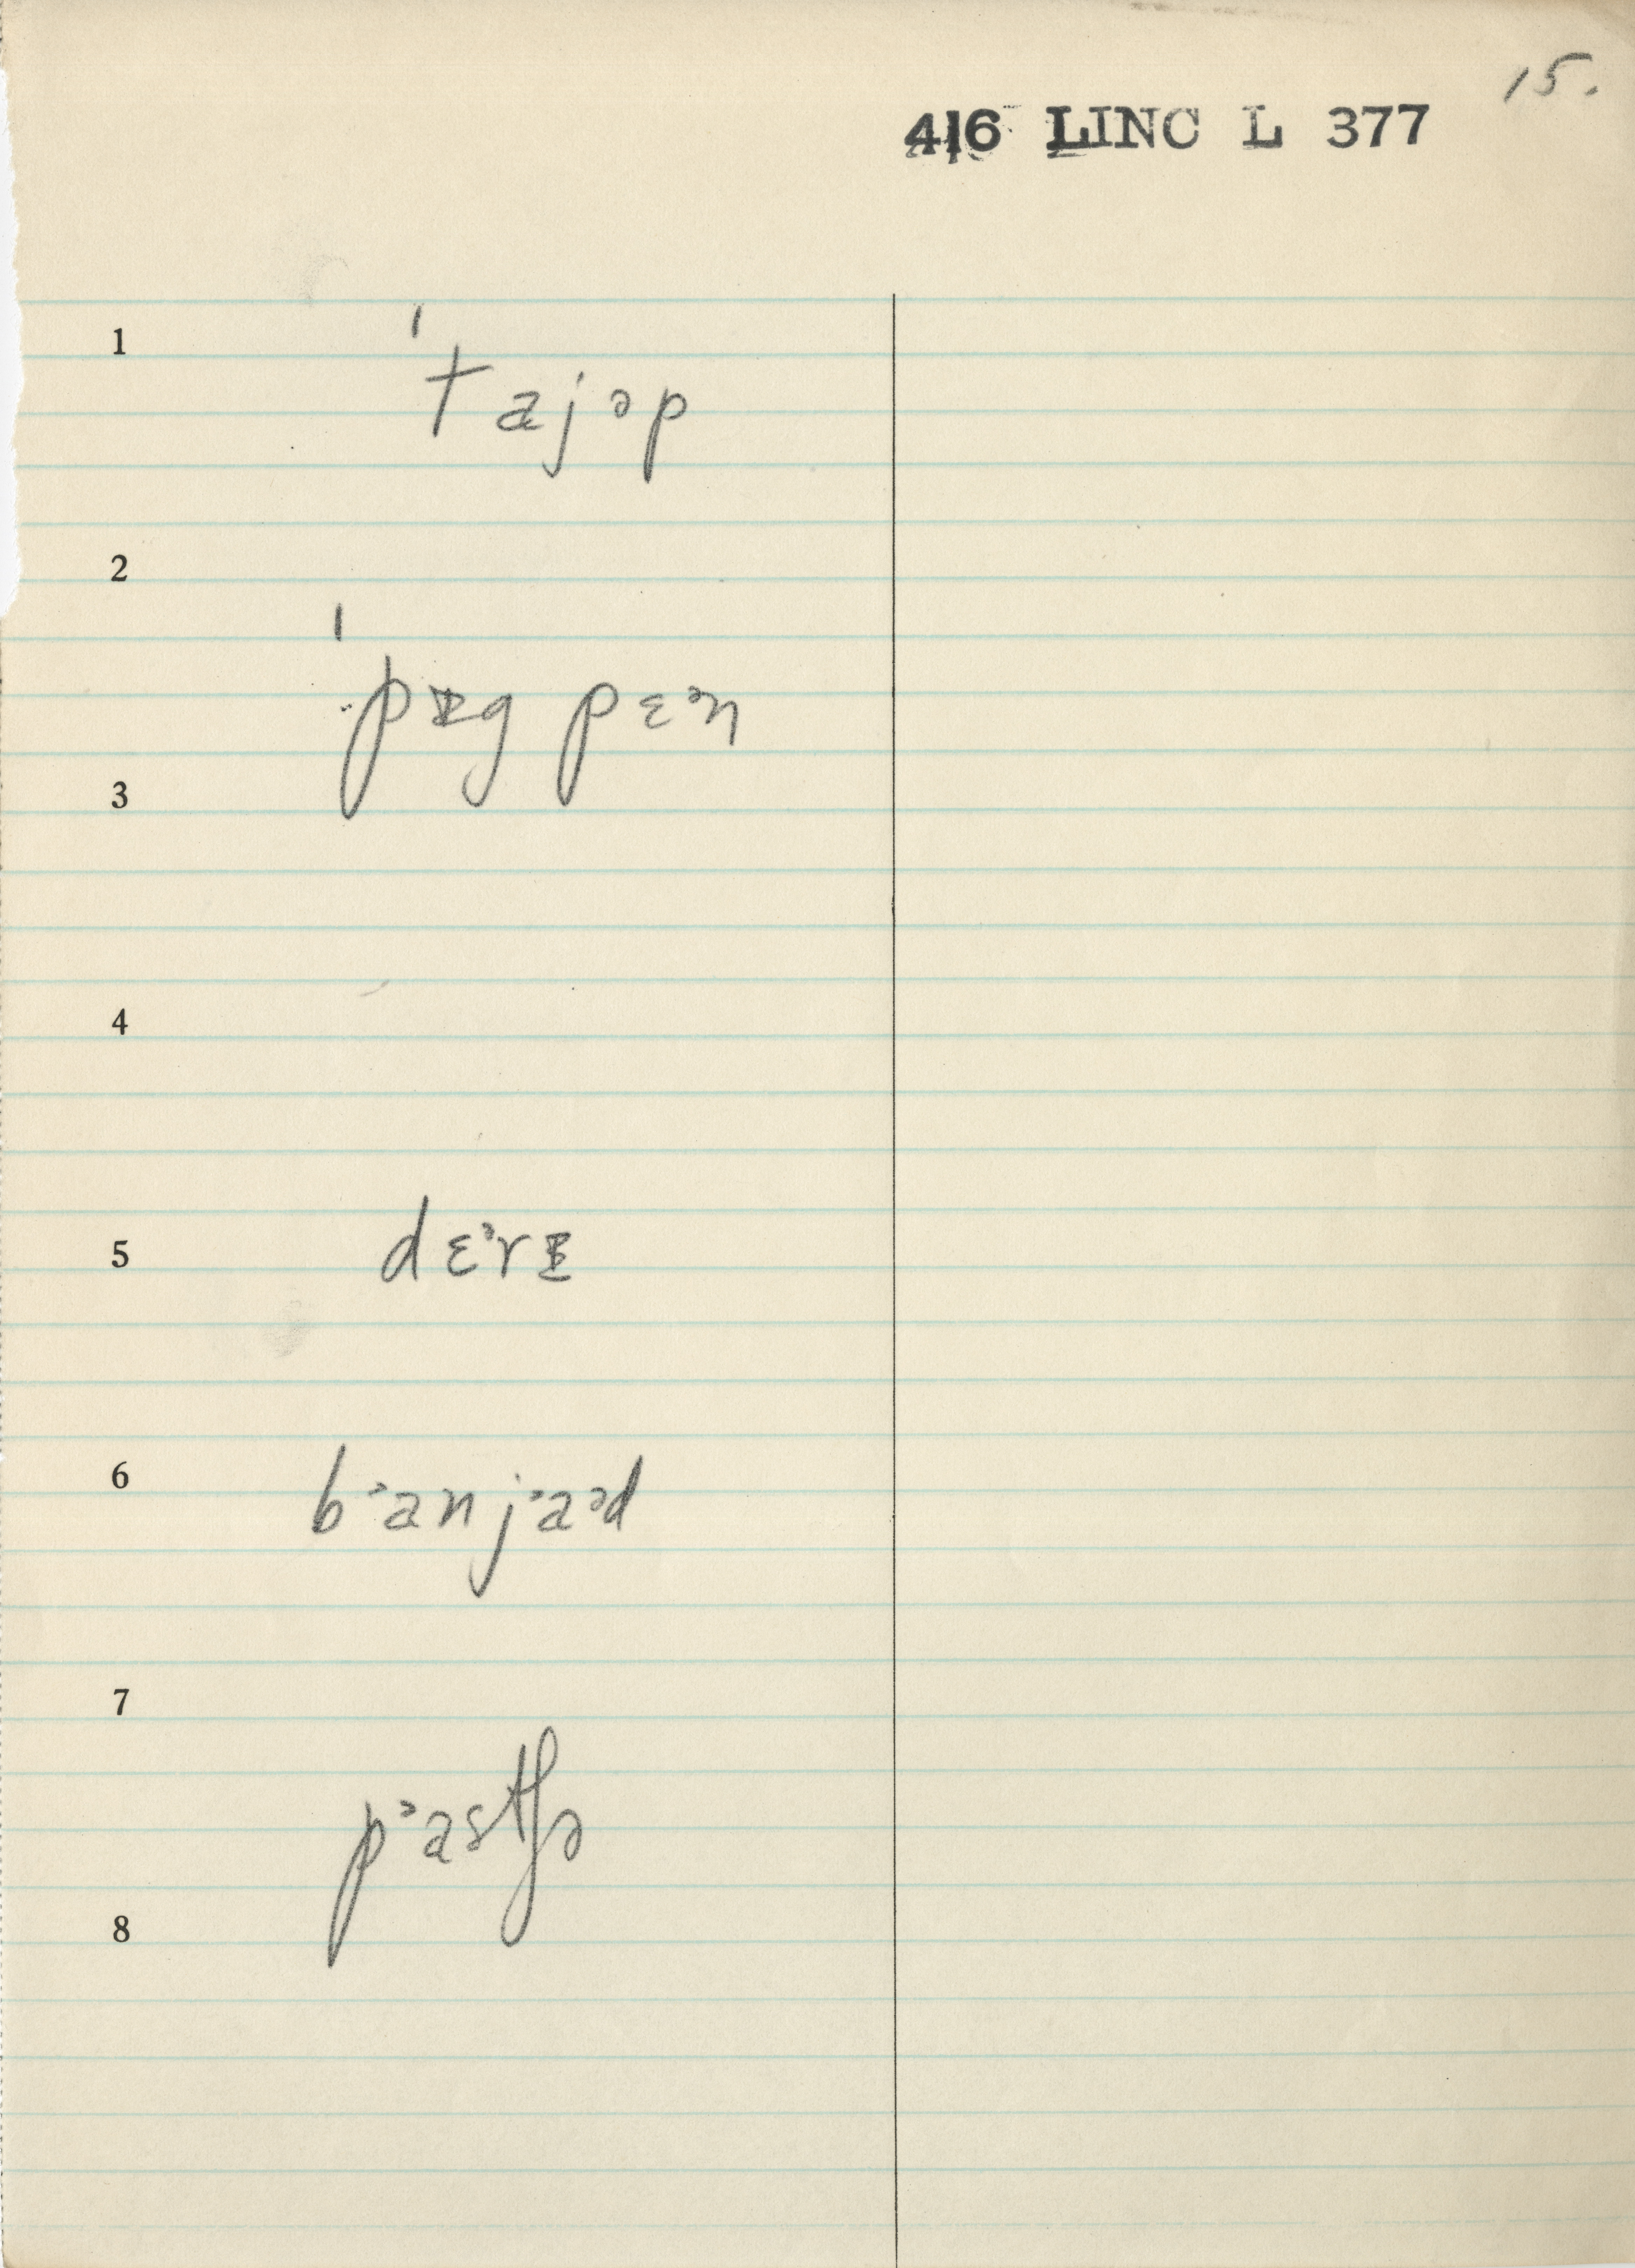 15.
416 LINC L 377
1
ˈtajəp
2
ˈpɪg pɛᵊn
3
4
5 dɛᵊrɪ
6 bᵊanjᵊaᵊd
7
pᵊastʃə
8